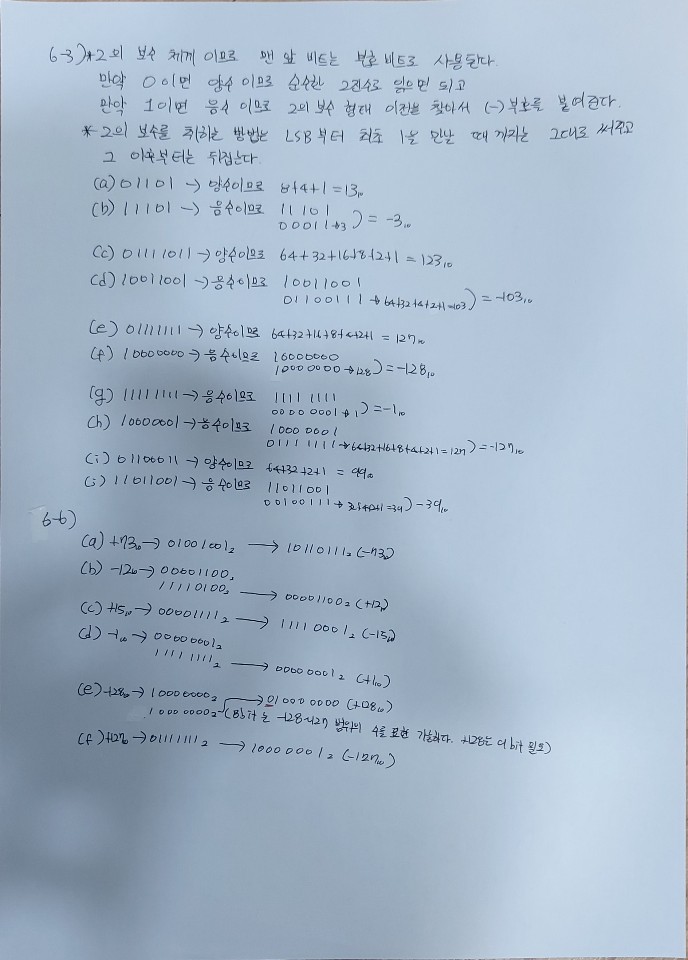 6-3) *2의 보수 체계 이므로 맨 앞 비트는 부호 비트로 사용된다.
만약 0이면 양수 이므로 순수한 2진수로 읽으면 되고
만약 1이면 음수 이므로 2의 보수 형태 이전을 찾아서 (-)부호를 붙여준다.
*2의 보수를 취하는 방법은 LSB부터 최초 1을 만날 때 까지는 그대로 써주고
그 이후부터는 뒤집는다.
(a) 01101 → 양수이므로 8+4+1=13₁₀
(b) 11101 → 음수이므로 11101
00011→3 ) = -3₁₀
(c) 01111011 → 양수이므로 64+32+16+8+2+1 = 123₁₀
(d) 10011001 → 음수이므로 10011001
01100111 → 64+32+4+2+1=103 ) = -103₁₀
(e) 01111111 → 양수이므로 64+32+16+8+4+2+1 = 127₁₀
(f) 10000000 → 음수이므로 10000000
10000000→128 ) = -128₁₀
(g) 11111111 → 음수이므로 1111 1111
0000 0001→1 ) = -1₁₀
(h) 10000001 → 음수이므로 1000 0001
0111 1111→64+32+16+8+4+2+1=127 ) = -127₁₀
(i) 01100011 → 양수이므로 64+32+2+1 = 99₁₀
(j) 11011001 → 음수이므로 11011001
00100111→32+4+2+1=39 ) -39₁₀
6-6)
(a) +73₁₀ → 01001001₂ → 10110111₂ (-73₁₀)
(b) -12₁₀ → 00001100₂
11110100₂ → 00001100₂ (+12₁₀)
(c) +15₁₀ → 00001111₂ → 11110001₂ (-15₁₀)
(d) -1₁₀ → 00000001₂
11111111₂ → 00000001₂ (+1₁₀)
(e) -128₁₀ → 10000000₂ → 010000000 (+128₁₀)
10000000₂ (8bit는 -128~127 범위의 수를 표현 가능하다. +128은 9bit 필요)
(f) +127₁₀ → 01111111₂ → 10000001₂ (-127₁₀)